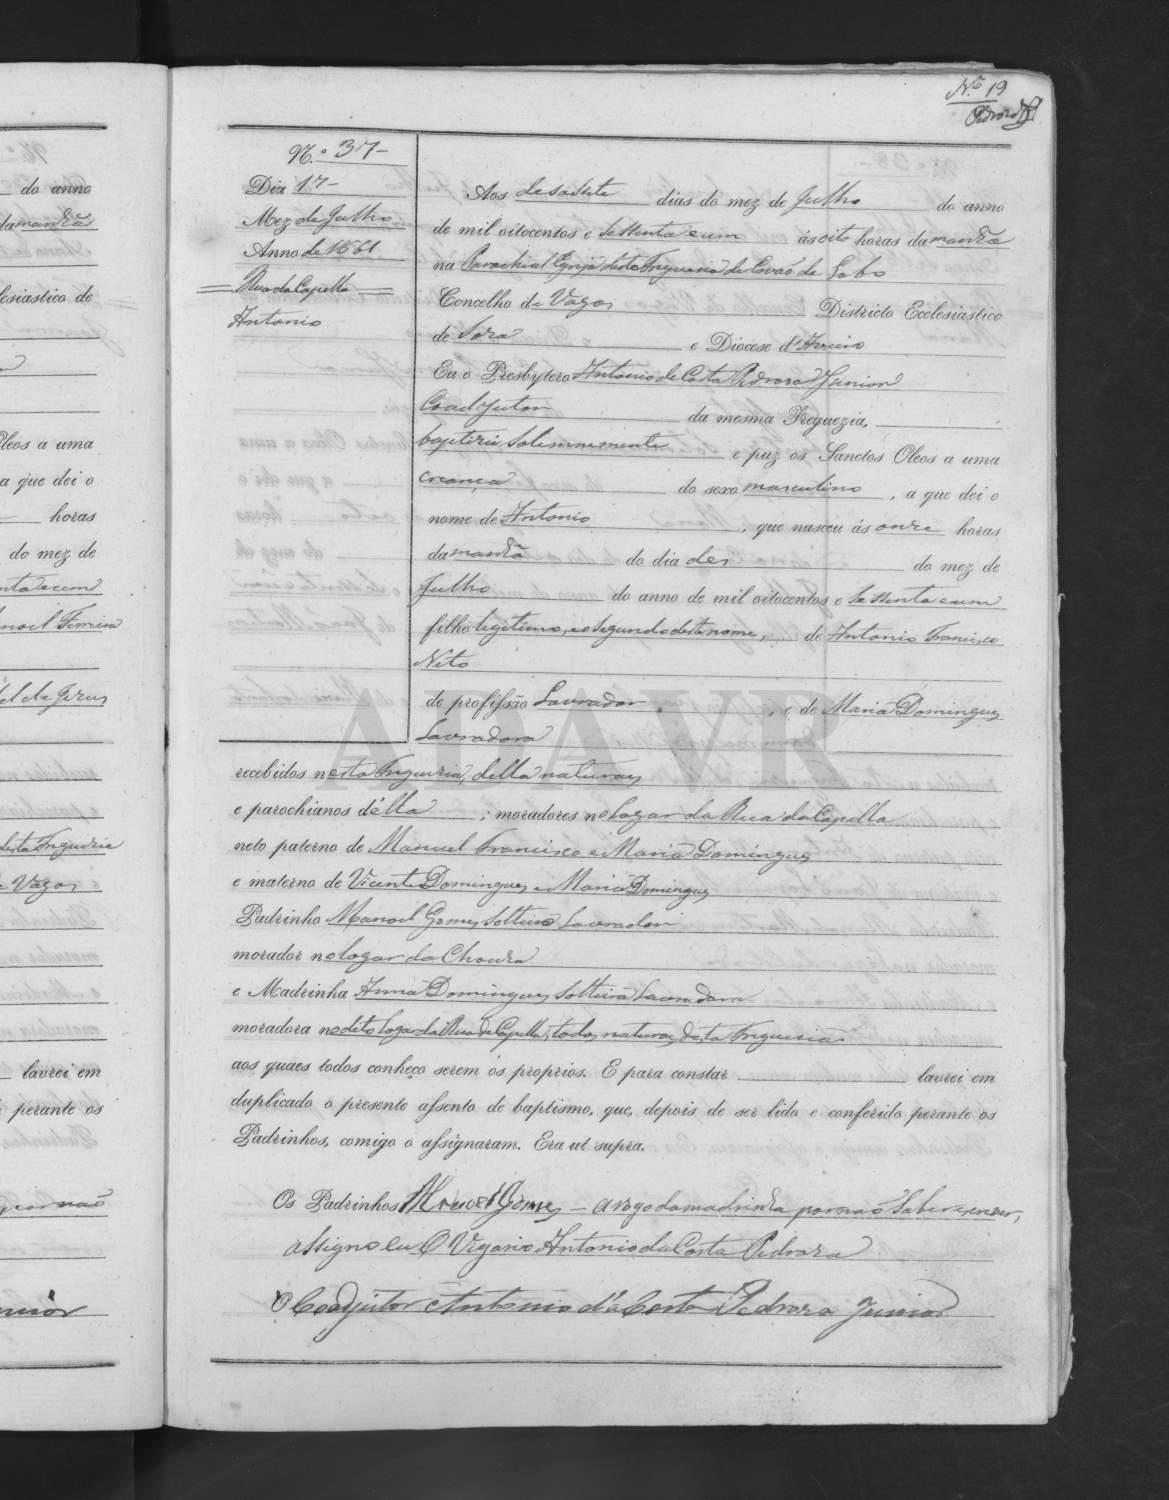 N.º 19
Pedrozo
do anno
da manhã
Ecclesiastico de
Oleos a uma
a que dei o
horas
do mez de
enta e um
Manoel Ferreira
de Jezus
desta Freguezia
e Vagos
lavrei em
perante os
por não
Junior
N.º 37-
Dia 17-
Mez de Julho
Anno de 1861
Rua da Capella
Antonio
Aos desasete dias do mez de Julho do anno
de mil oitocentos e sessenta e um ás oito horas da manhã
na Parochial Egreja desta Freguezia de Covaõ de Lobo
Concelho de Vagos Districto Ecclesiastico
de Soza e Diocese d'Aveiro
Eu o Presbytero Antonio da Costa Pedrozo Junior
Coadjutor da mesma Freguezia,
baptizei solemnemente e puz os Sanctos Oleos a uma
creança do sexo masculino, a que dei o
nome de Antonio, que nasceu ás onze horas
da manhã do dia des do mez de
Julho do anno de mil oitocentos e sessenta e um
filho legitimo, e o segundo deste nome, de Antonio Francisco
Neto
de profissão Lavrador, e de Maria Domingues
Lavradora
recebidos nesta Freguezia, della naturaes
e parochianos d'ella; moradores no lugar da Rua da Capella
neto paterno de Manuel Francisco e Maria Domingues
e materno de Vicente Domingues e Maria Domingues
Padrinho Manoel Gomes solteiro Lavrador
morador no logar da Choura
e Madrinha Anna Domingues solteira Lavradora
moradora no dito logar da Rua da Capella, todos naturaes desta Freguezia
aos quaes todos conheço serem os proprios. E para constar lavrei em
duplicado o presente assento de baptismo, que, depois de ser lido e conferido perante os
Padrinhos, comigo o assignaram. Era ut supra.
Os Padrinhos Manoel Gomes - a rogo da madrinha por não saber escrever,
assigno eu O Vigario Antonio da Costa Pedrozo
O Coadjutor Antonio d'a Costa Pedrozo Junior
ADAVR